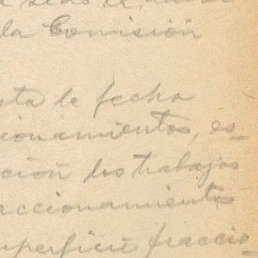 la Comisión
ta la fecha
cionamientos, es-
ción los trabajos
accionamientos
uperficie fraccio-